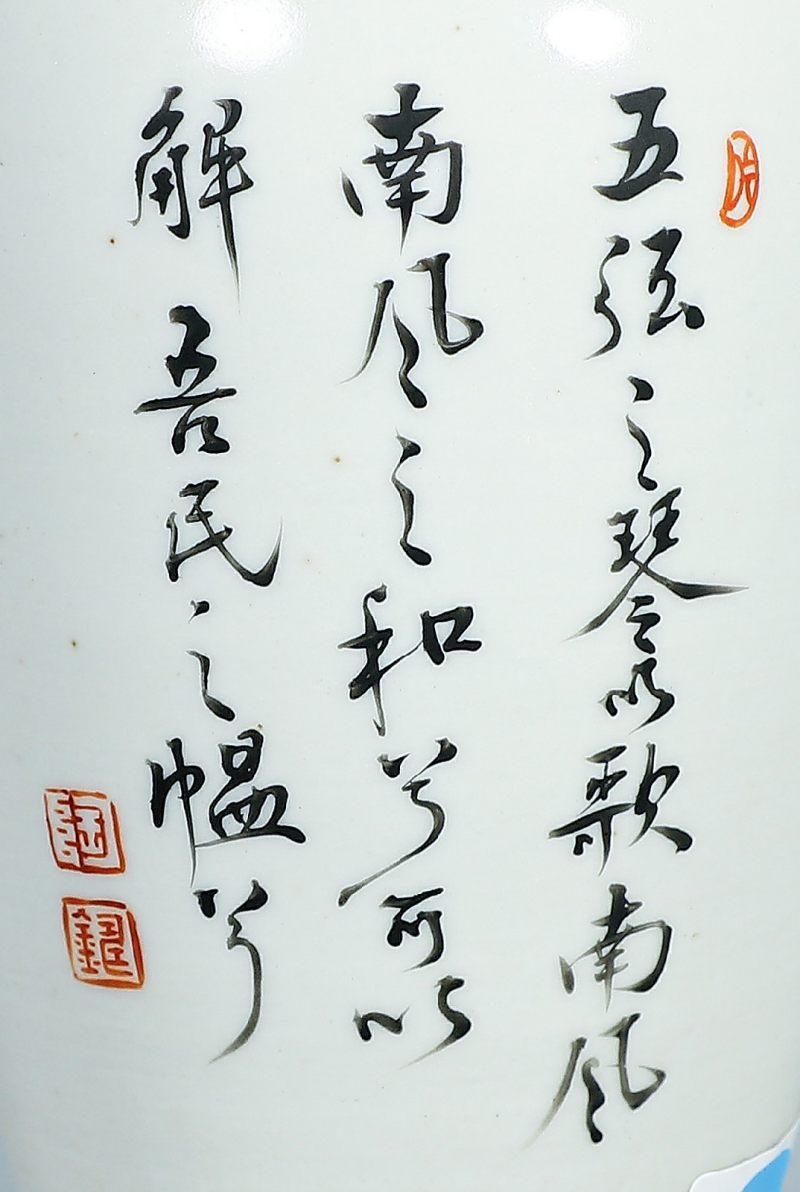 五弦之琴以歌南风
南风之和兮可以
解吾民之愠兮